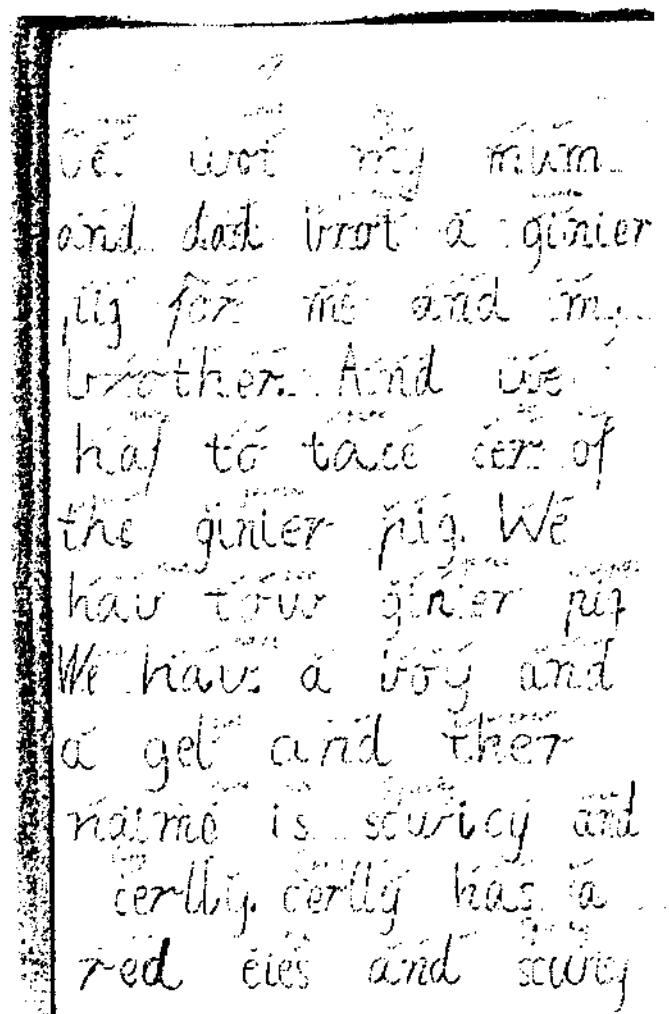 wot my mum
and dad brot a ginier
pig for me and my
brother. And we
haf to tace cer of
the ginier pig. We
hav tow ginier pig
We hav a boy and
a gel and ther
naime is scwicy and
cerlly. cerlly has a
red eies and scwicy